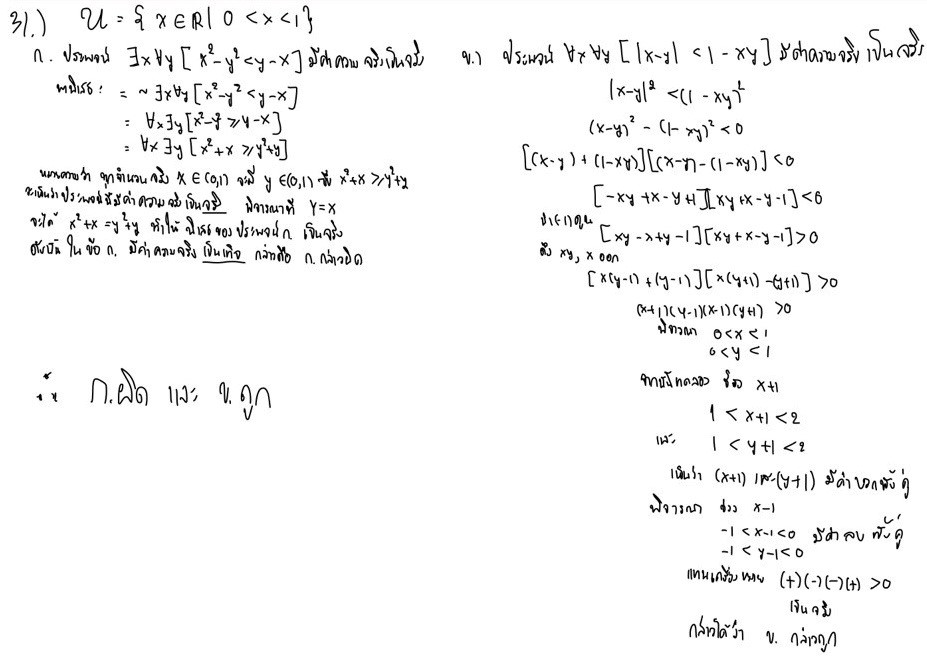 31.) U = { x ∈ ℝ | 0 < x < 1 }
ก. ประพจน์ ∃x∀y [ x² - y² < y - x ] มีค่าความจริงเป็นจริง
พานิเสธ : = ~ ∃x∀y [ x² - y² < y - x ]
= ∀x∃y [ x² - y² ≥ y - x ]
= ∀x∃y [ x² + x ≥ y² + y ]
หมายความว่า ทุกจำนวนจริง x ∈ (0,1) จะมี y ∈ (0,1) ซึ่ง x² + x ≥ y² + y
จะเห็นว่าประพจน์นี้มีค่าความจริงเป็นจริง พิจารณาที่ y = x
จะได้ x² + x = y² + y ทำให้ นิเสธของประพจน์ ก. เป็นจริง
ดังนั้น ในข้อ ก. มีค่าความจริงเป็นเท็จ กล่าวคือ ก. กล่าวผิด
∴ ก.ผิด และ ข.ถูก
ข.) ประพจน์ ∀x∀y [ |x-y| < 1 - xy ] มีค่าความจริงเป็นจริง
|x-y|² < (1 - xy)²
(x-y)² - (1- xy)² < 0
[(x-y) + (1-xy)][(x-y) - (1-xy)] < 0
[-xy + x - y + 1][xy + x - y - 1] < 0
นำ (-1) คูณ [xy - x + y - 1][xy + x - y - 1] > 0
ดึง xy, x ออก
[x(y-1) + (y-1)][x(y+1) - (y+1)] > 0
(x+1)(y-1)(x-1)(y+1) > 0
พิจารณา 0 < x < 1
0 < y < 1
ช่วง x+1
1 < x+1 < 2
และ 1 < y+1 < 2
เห็นว่า (x+1) และ (y+1) มีค่าบวกทั้งคู่
พิจารณา ช่วง x-1
-1 < x-1 < 0 มีค่าลบทั้งคู่
-1 < y-1 < 0
แทนเครื่องหมาย (+)(-)(-)(+) > 0
เป็นจริง
กล่าวได้ว่า ข. กล่าวถูก